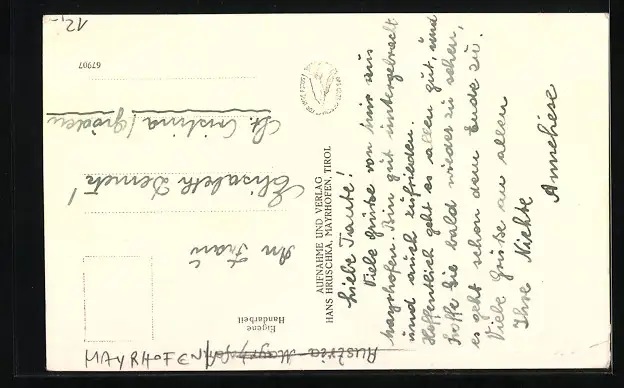 Liebe Tante!
Viele Grüße von hier aus
Mayrhofen. Bin gut untergebracht
und auch zufrieden.
Hoffentlich geht es allen gut, und
hoffe Sie bald wieder zu sehen,
es geht schon dem Ende zu.
Viele Grüße an allen
Ihre Nichte
Anneliese
AUFNAHME UND VERLAG
HANS HRUSCHKA, MAYRHOFEN, TIROL
Eigene
Handarbeit
An Frau
Elisabeth
St. Cristina / Gröden
67907
12,-
Austria Mayrhofen
MAYRHOFEN